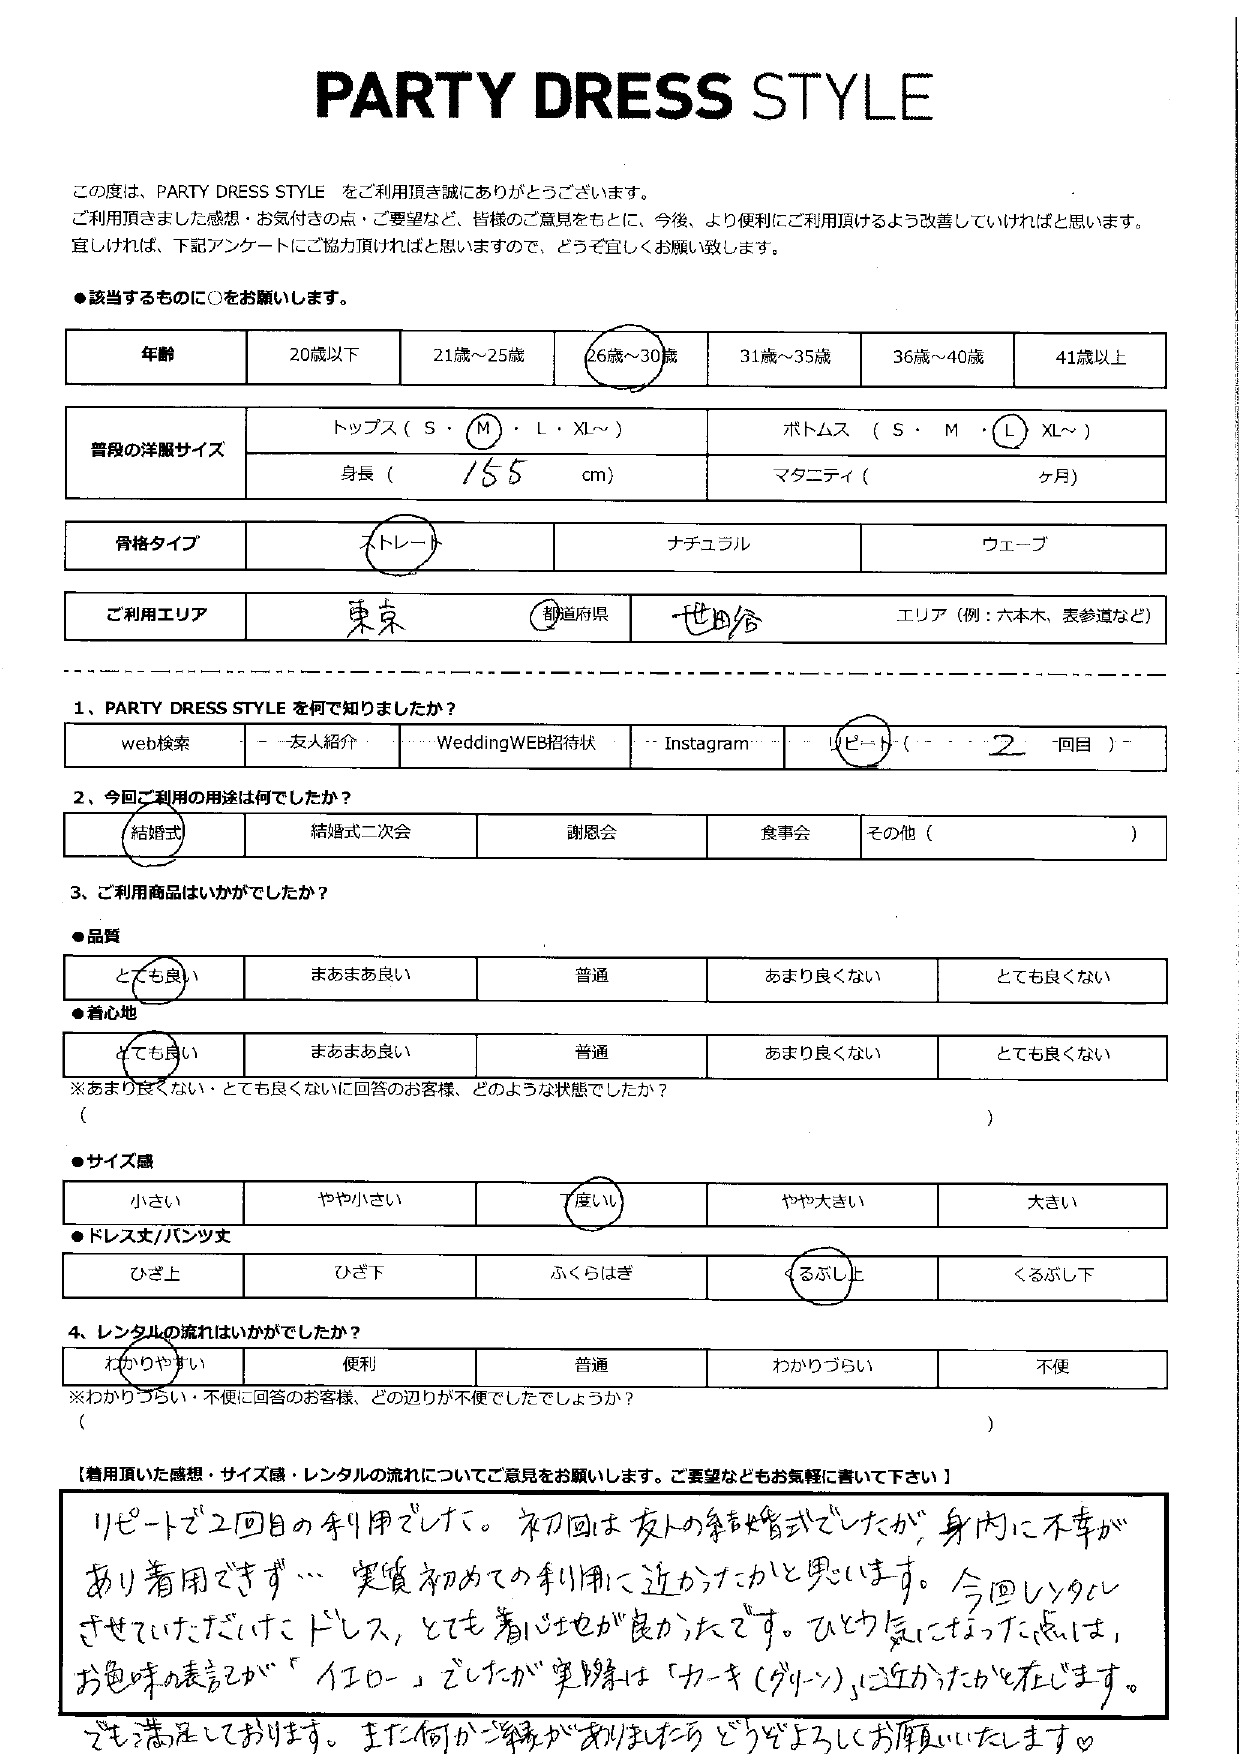 PARTY DRESS STYLE
この度は、PARTY DRESS STYLE をご利用頂き誠にありがとうございます。
ご利用頂きました感想・お気付きの点・ご要望など、皆様のご意見をもとに、今後、より便利にご利用頂けるよう改善していければと思います。
宜しければ、下記アンケートにご協力頂ければと思いますので、どうぞ宜しくお願い致します。
●該当するものに○をお願いします。
年齢 20歳以下 21歳～25歳 26歳～30歳 31歳～35歳 36歳～40歳 41歳以上
普段の洋服サイズ トップス ( S ・ M ・ L ・ XL～ ) ボトムス ( S ・ M ・ L XL～ )
身長 ( 155 cm) マタニティ ( ヶ月)
骨格タイプ ストレート ナチュラル ウェーブ
ご利用エリア 東京 都道府県 世田谷 エリア（例：六本木、表参道など）
1、PARTY DRESS STYLE を何で知りましたか？
web検索 友人紹介 WeddingWEB招待状 Instagram リピート ( 2 回目 )
2、今回ご利用の用途は何でしたか？
結婚式 結婚式二次会 謝恩会 食事会 その他 ( )
3、ご利用商品はいかがでしたか？
●品質
とても良い まあまあ良い 普通 あまり良くない とても良くない
●着心地
とても良い まあまあ良い 普通 あまり良くない とても良くない
※あまり良くない・とても良くないに回答のお客様、どのような状態でしたか？
( )
●サイズ感
小さい やや小さい 丁度いい やや大きい 大きい
●ドレス丈/パンツ丈
ひざ上 ひざ下 ふくらはぎ くるぶし上 くるぶし下
4、レンタルの流れはいかがでしたか？
わかりやすい 便利 普通 わかりづらい 不便
※わかりづらい・不便に回答のお客様、どの辺りが不便でしたでしょうか？
( )
【着用頂いた感想・サイズ感・レンタルの流れについてご意見をお願いします。ご要望などもお気軽に書いて下さい】
リピートで2回目の利用でした。初回は友人の結婚式でしたが、身内に不幸が
あり着用できず… 実質初めての利用に近かったかと思います。今回レンタル
させていただいたドレス、とても着心地が良かったです。ひとつ気になった点は、
お色味の表記が「イエロー」でしたが実際は「カーキ(グリーン)」に近かったかと存じます。
でも満足しております。また何かご縁がありましたらどうぞよろしくお願いいたします♡